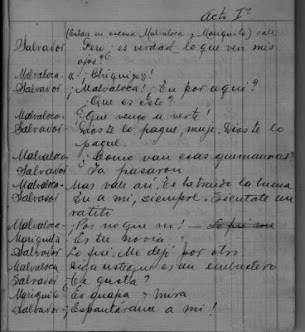 Acto Iº
(Están en escena Malvaloca y Mariquita) sale
Salvador Pero ¿es verdad lo que ven mis
ojos?
Malvaloca - ¡Chiquiyo!
Salvador - ¡Malvaloca! ¿Tu por aqui?
¿Que es esto?
Malvaloca - Que vengo a verte!
Salvador - Dios te lo pague, muje. Dios te lo
pague.
Malvaloca - ¿Como van esas quemauras?
Salvador Ya pasaron
Malvaloca - Mas vale asi. Te he traido la buena
Salvador Tu a mi, siempre. Sientate un
ratito
Malvaloca - Pos no que no! -
Mariquita Es tu novia?
Salvador Lo fui. Me dejó por otro
Malvaloca Diga usted que es un embustero
Salvador Te gusta?
Mariquita Es guapa y mira
Salvador - Espantarana a mi!